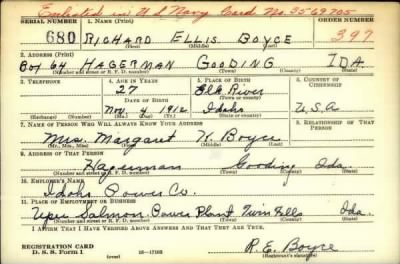 Enlisted in U.S. Navy Card No. 3569705
SERIAL NUMBER 1. NAME (Print) ORDER NUMBER
680 RICHARD ELLIS BOYCE 397
(First) (Middle) (Last)
2. ADDRESS (Print)
Box 64 HAGERMAN GOODING IDA.
(Number and street or R. F. D. number) (Town) (County) (State)
3. TELEPHONE 4. AGE IN YEARS 5. PLACE OF BIRTH 6. COUNTRY OF CITIZENSHIP
27 Elk River
DATE OF BIRTH (Town or county)
Nov 4 1912 Idaho U.S.A
(Exchange) (Number) (Mo.) (Day) (Yr.) (State or country)
7. NAME OF PERSON WHO WILL ALWAYS KNOW YOUR ADDRESS 8. RELATIONSHIP OF THAT PERSON
Mrs. Margaret K. Boyce
(Mr., Mrs., Miss) (First) (Middle) (Last)
9. ADDRESS OF THAT PERSON
Hagerman Gooding Ida.
(Number and street or R. F. D. number) (Town) (County) (State)
10. EMPLOYER'S NAME
Idaho Power Co.
11. PLACE OF EMPLOYMENT OR BUSINESS
Upper Salmon Power Plant Twin Falls Ida.
(Number and street or R. F. D. number) (Town) (County) (State)
I AFFIRM THAT I HAVE VERIFIED ABOVE ANSWERS AND THAT THEY ARE TRUE.
REGISTRATION CARD
D. S. S. Form 1 (over) 16—17105 R. E. Boyce
(Registrant's signature)